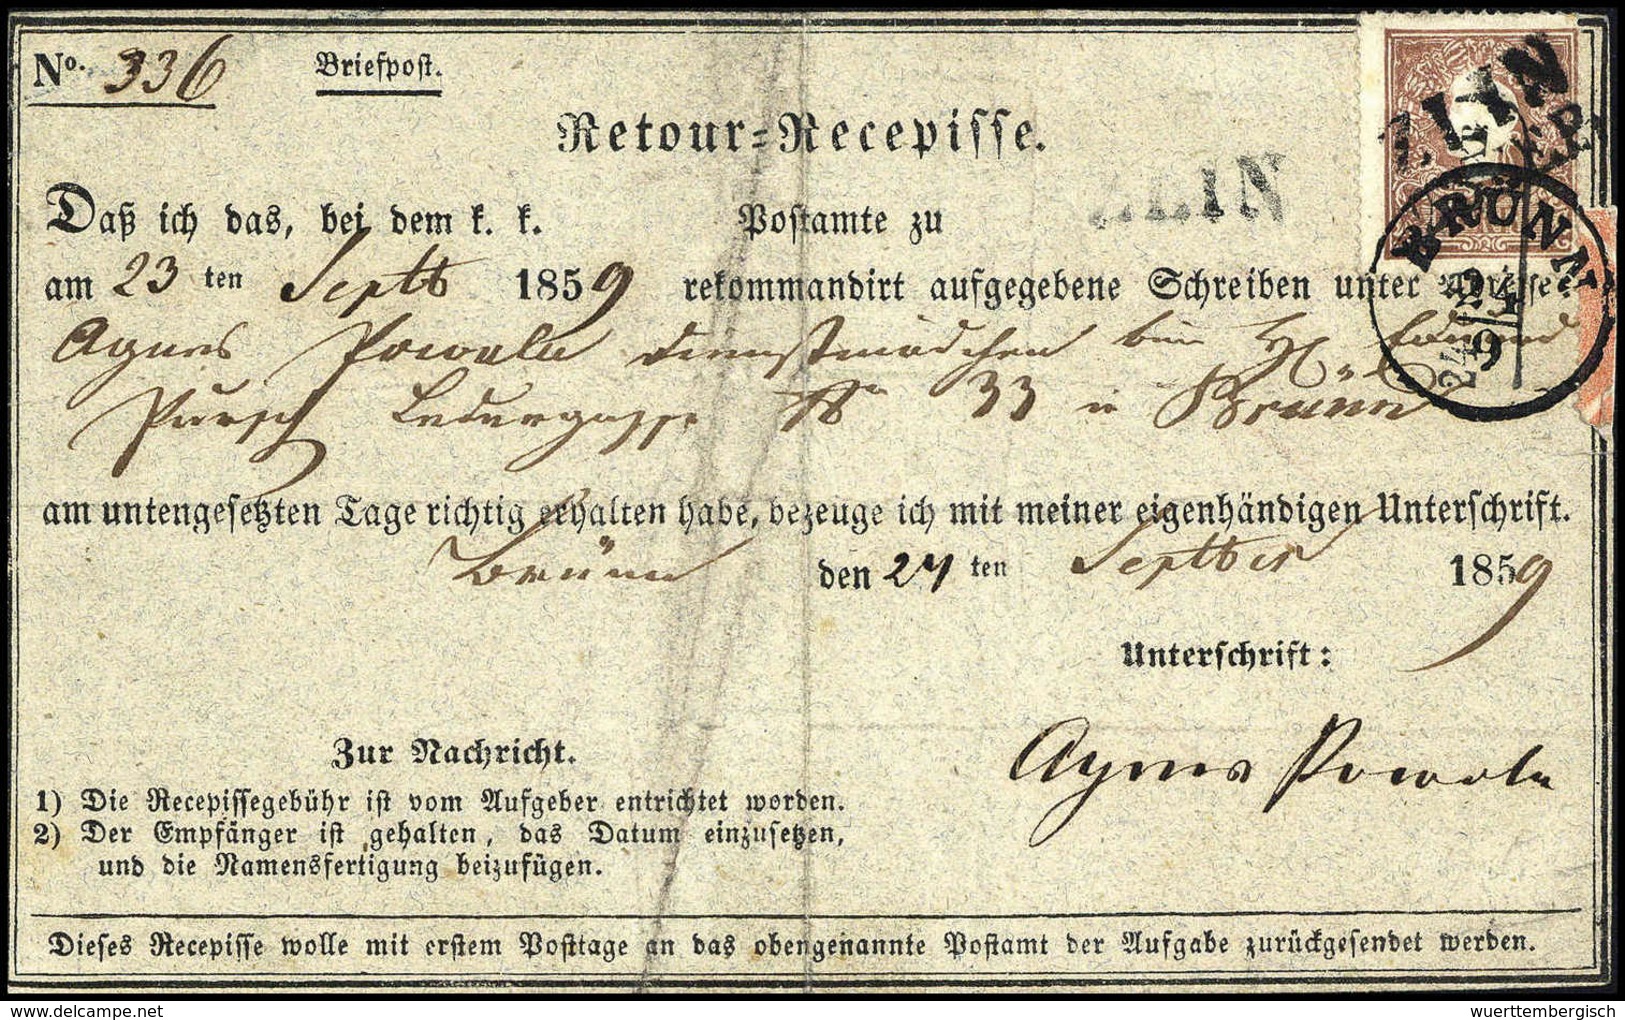 No. 336 Briefpost.
Retour-Recepisse.
ZLIN
ZLIN
Daß ich das, bei dem k. k. Postamte zu
BRÜNN
am 23 ten Septb 1859 rekommandirt aufgegebene Schreiben unter Adresse:
24
9
Agnes Powala Dienstmädchen bei H Eduard
Pursch Ledergasse No 33 in Brünn
am untengesetzten Tage richtig erhalten habe, bezeuge ich mit meiner eigenhändigen Unterschrift.
Brünn den 24 ten September 1859
Unterschrift:
Agnes Powala
Zur Nachricht.
1) Die Recepissegebühr ist vom Aufgeber entrichtet worden.
2) Der Empfänger ist gehalten, das Datum einzusetzen,
und die Namensfertigung beizufügen.
Dieses Recepisse wolle mit erstem Posttage an das obengenannte Postamt der Aufgabe zurückgesendet werden.
wuerttembergisch